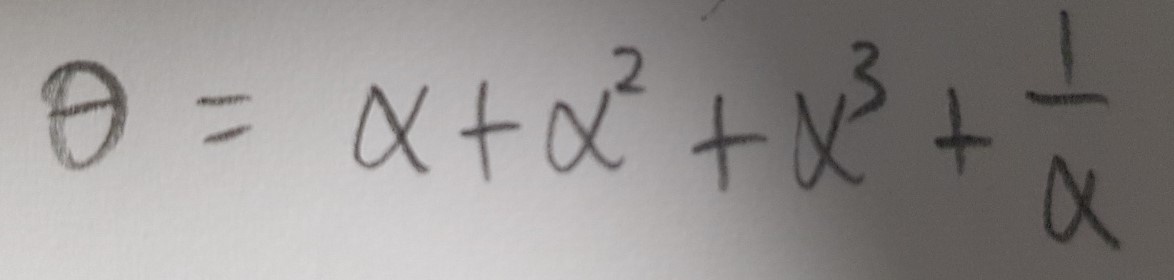 θ = α + α² + α³ + 1/α